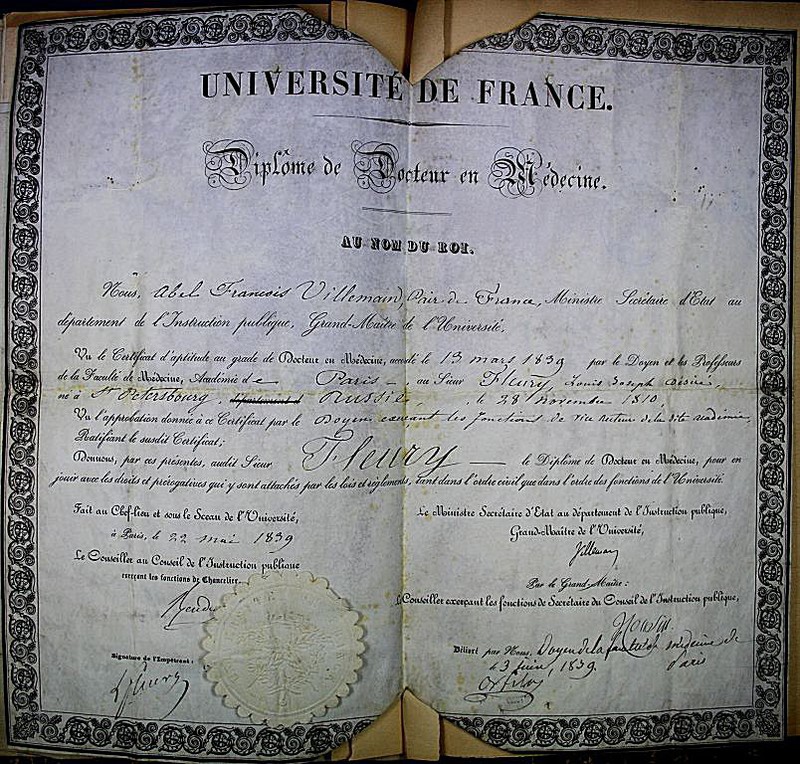 UNIVERSITÉ DE FRANCE.
Diplôme de Docteur en Médecine.
AU NOM DU ROI.
Nous, Abel François Villemain, Pair de France, Ministre Secrétaire d'Etat au
département de l'Instruction publique, Grand-Maître de l'Université.
Vu le Certificat d'aptitude au grade de Docteur en Médecine, accordé le 13 mars 1839 par le Doyen et les Professeurs
de la Faculté de Médecine, Académie de Paris, au Sieur Fleury, Louis Joseph Désiré,
né à St Petersbourg, département d Russie, le 28 Novembre 1810.
Vu l'approbation donnée à ce Certificat par le Doyen exerçant les fonctions de vice recteur de la dite académie,
Ratifiant le susdit Certificat;
Donnons, par ces présentes, audit Sieur Fleury le Diplôme de Docteur en Médecine, pour en
jouir avec les droits et prérogatives qui y sont attachés par les lois et règlements, tant dans l'ordre civil que dans l'ordre des fonctions de l'Université
Fait au Chef-lieu et sous le Sceau de l'Université,
à Paris, le 22 mai 1839
Le Conseiller au Conseil de l'Instruction publique
exerçant les fonctions de Chancelier.
Rendu
Signature de l'Impétrant:
L Fleury
Le Ministre Secrétaire d'Etat au département de l'Instruction publique,
Grand-Maître de l'Université,
Villemain
Par le Grand-Maître:
Le Conseiller exerçant les fonctions de Secrétaire du Conseil de l'Instruction publique,
Délivré par Nous, Doyen de la faculté de médecine de
Paris
le 3 juin, 1839.
Orfila